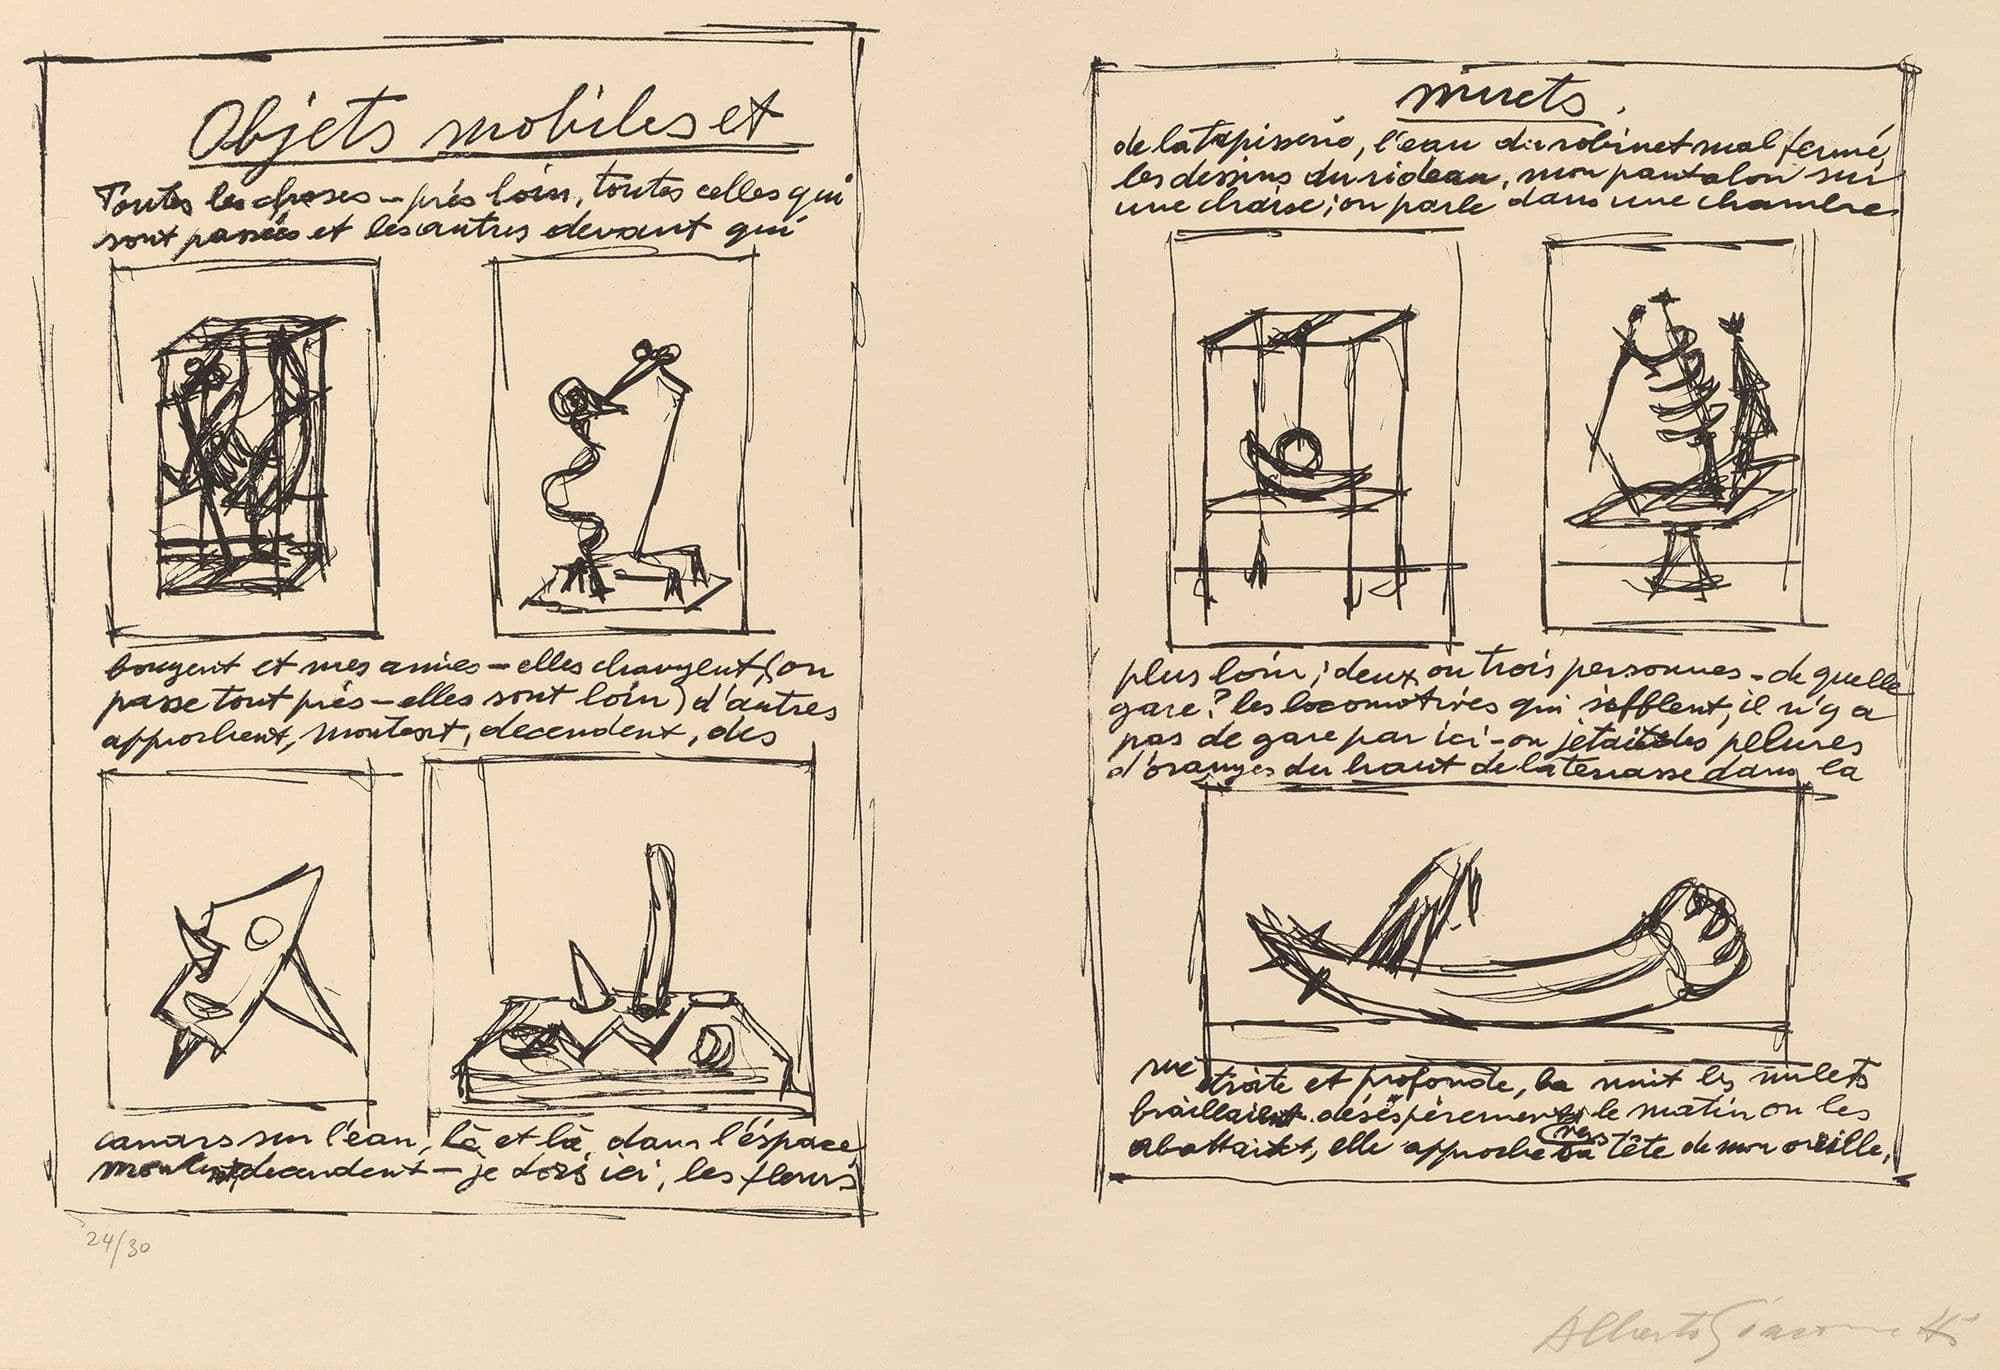 Objets mobiles et
Toutes les choses – près loin, toutes celles qui
sont passées et les autres devant qui
bougent et mes amies – elles changent (on
passe tout près – elles sont loin) d'autres
approchent, montent, decendent, des
canars sur l'eau, là et là, dans l'éspace
montent, decendent – je dors ici, les fleurs
24/30
muets.
de la tapisserie, l'eau du robinet mal fermé,
les dessins du rideau, mon pantalon sur
une chaise; on parle dans une chambre
plus loin; deux ou trois personnes – de quelle
gare? les locomotives qui sifflent, il n'y a
pas de gare par ici – on jetait les pelures
d'oranges du haut de la terrasse dans la
rue étroite et profonde, la nuit les mulets
braillaient désésperement, le matin on les
abattait, elle approche vers sa tête de mon oreille,
Alberto Giacometti